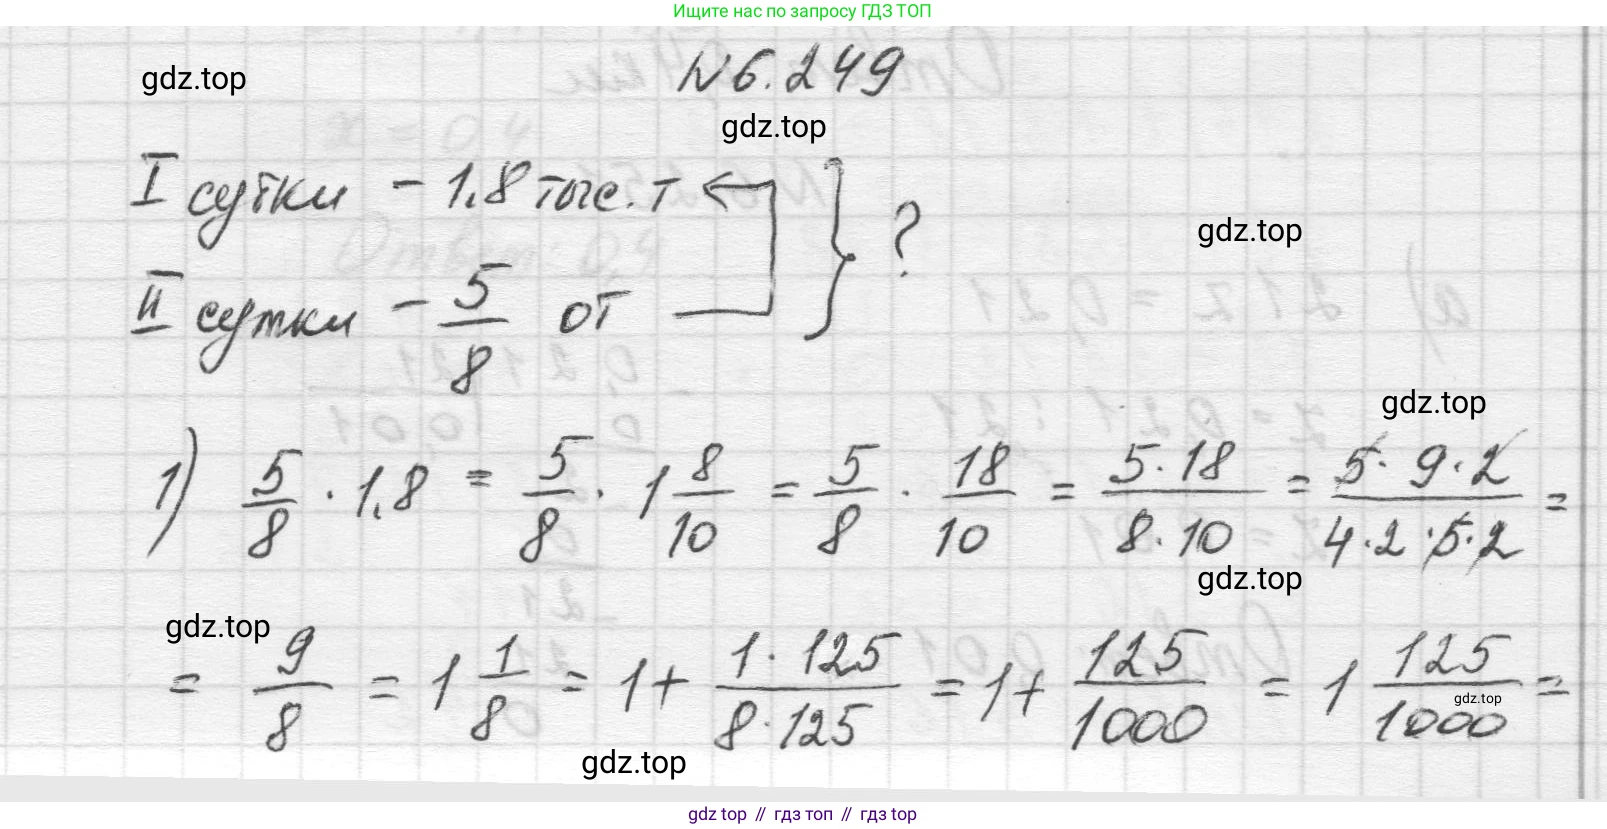 Ищите нас по запросу ГДЗ ТОП
gdz.top
N 6.249
gdz.top
I сутки - 1,8 тыс. т } ?
gdz.top
II сутки - 5/8 от
gdz.top
1) 5/8 · 1,8 = 5/8 · 1 8/10 = 5/8 · 18/10 = 5·18/8·10 = 5·9·2/4·2·5·2 =
gdz.top
gdz.top
= 9/8 = 1 1/8 = 1+ 1·125/8·125 = 1+ 125/1000 = 1 125/1000 =
gdz.top
gdz.top
gdz top // гдз топ // gdz top